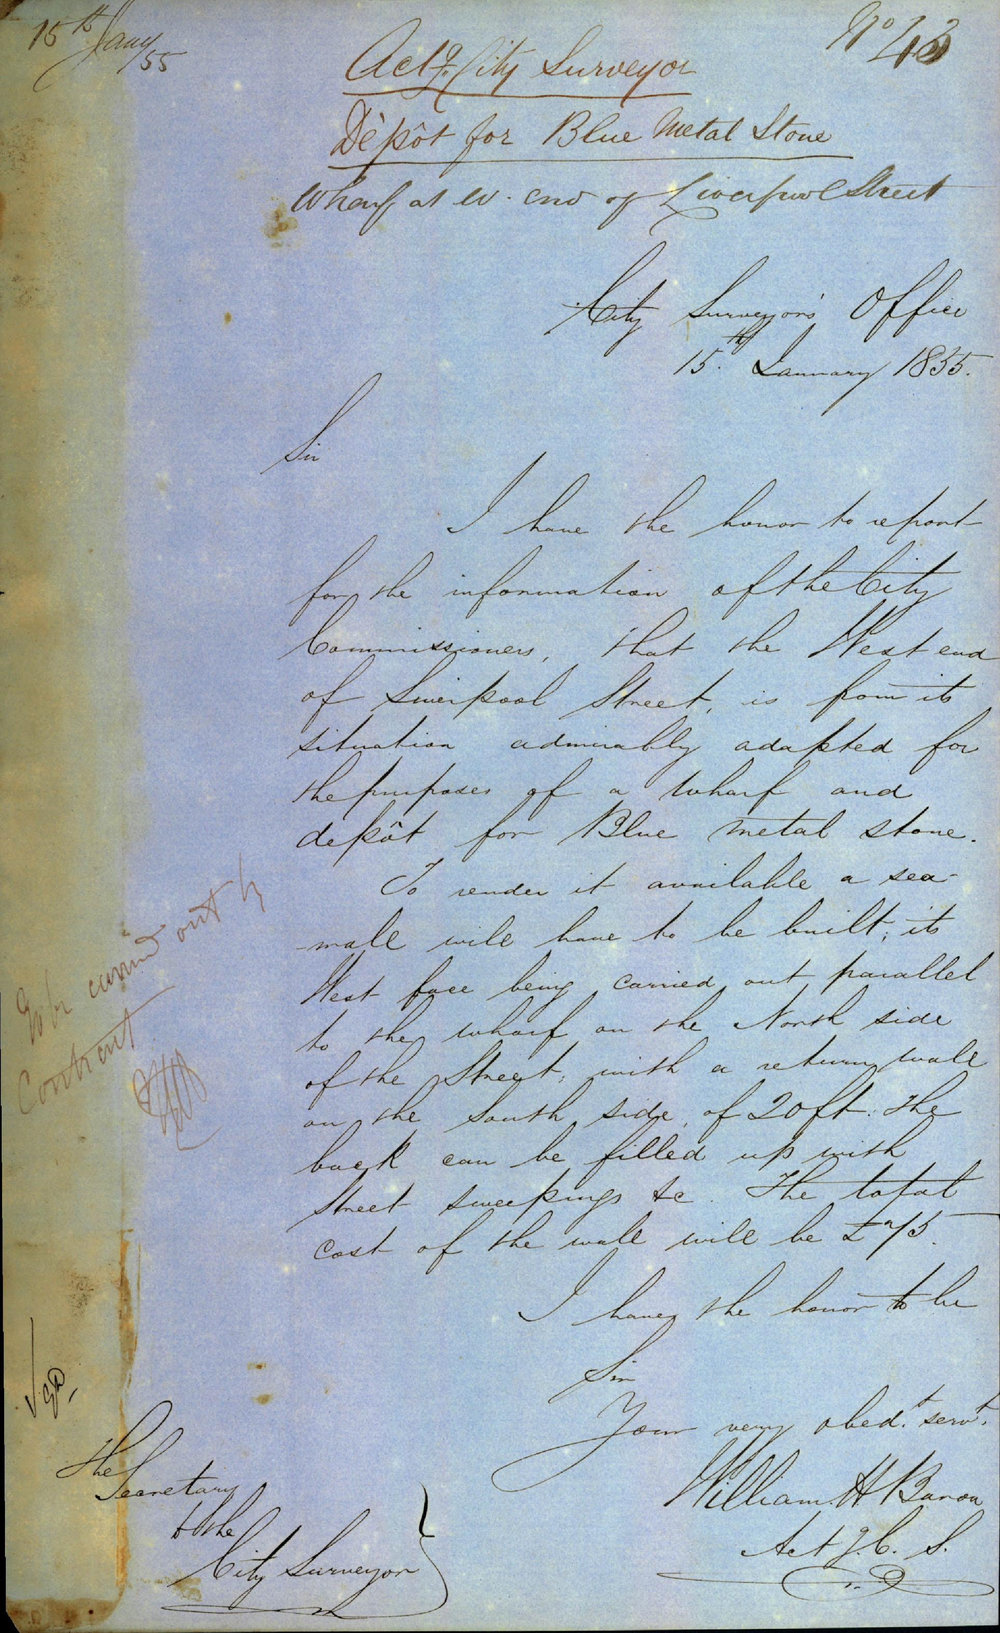 15th Jany/55
No 43
Actg. City Surveyor
Dèpôt for Blue Metal Stone
Wharf at W. end of Liverpool Street
City Surveyor's Office
15th January 1855.
Sir
I have the honor to report
for the information of the City
Commissioners, that the West end
of Liverpool Street, is from its
situation admirably adapted for
the purposes of a Wharf and
depôt for Blue Metal Stone.
To render it available a sea
wall will have to be built; its
West face being carried out parallel
to the wharf on the North side
of the Street; with a return wall
on the South side, of 20 ft. The
back can be filled up with
Street sweepings &c. The total
cost of the wall will be £
I have the honor to be
Sir
Your very obedt. servt.
William H Baron
Act g. C. S.
To be carried out by
Contract
The
Secretary
to the
City Surveyor